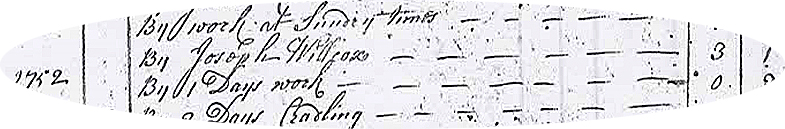 By work at Sundry times
By Joseph Willcox 3 1
1752 By 1 Days work 0
Days Cradling